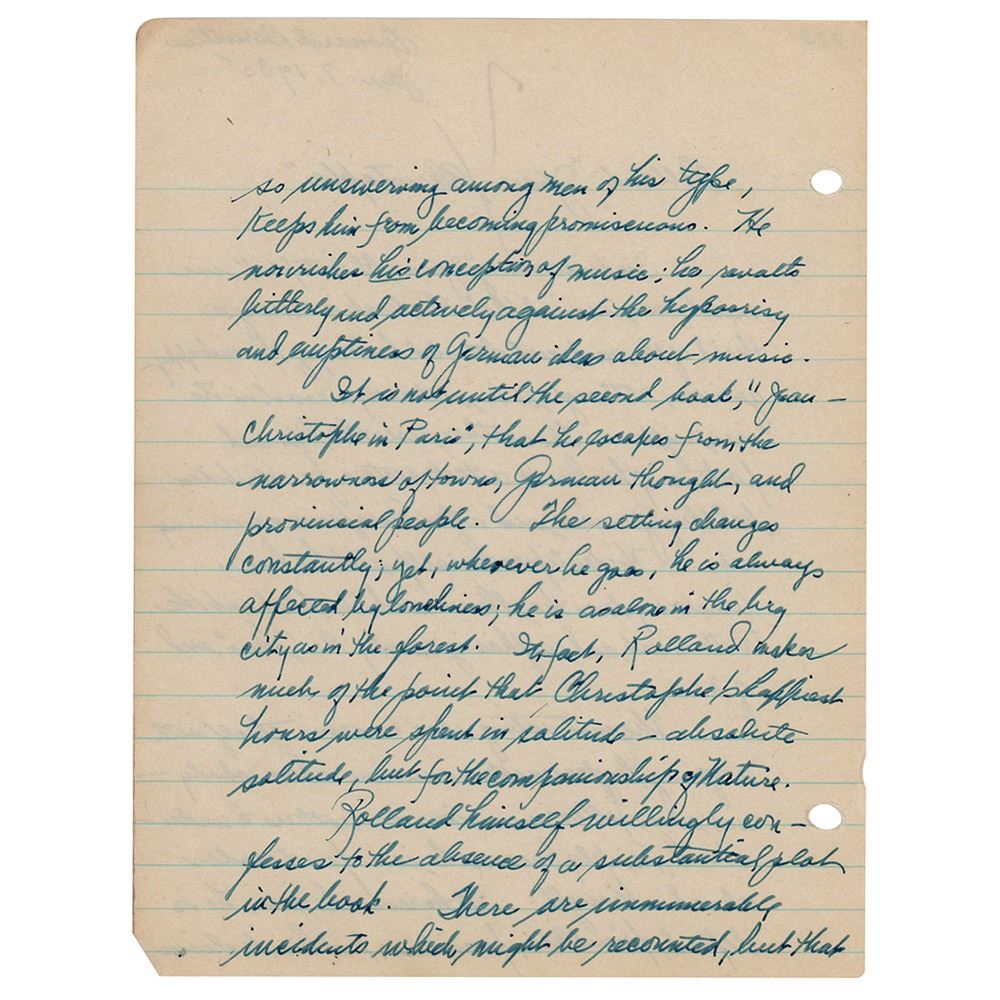 so unswerving among men of his type,
keeps him from becoming promiscuous. He
nourishes his conception of music; he revolts
bitterly and actively against the hypocrisy
and emptiness of German ideas about music.
It is not until the second book, "Jean-
Christophe in Paris", that he escapes from the
narrowness of towns, German thought, and
provincial people. The setting changes
constantly; yet, wherever he goes, he is always
affected by loneliness; he is as alone in the big
city as in the forest. In fact, Rolland makes
much of the point that Christophe's happiest
hours were spent in solitude – absolute
solitude, but for the companionship of Nature.
Rolland himself willingly con-
fesses to the absence of a substantial plot
in the book. There are innumerable
incidents which might be recounted, but that